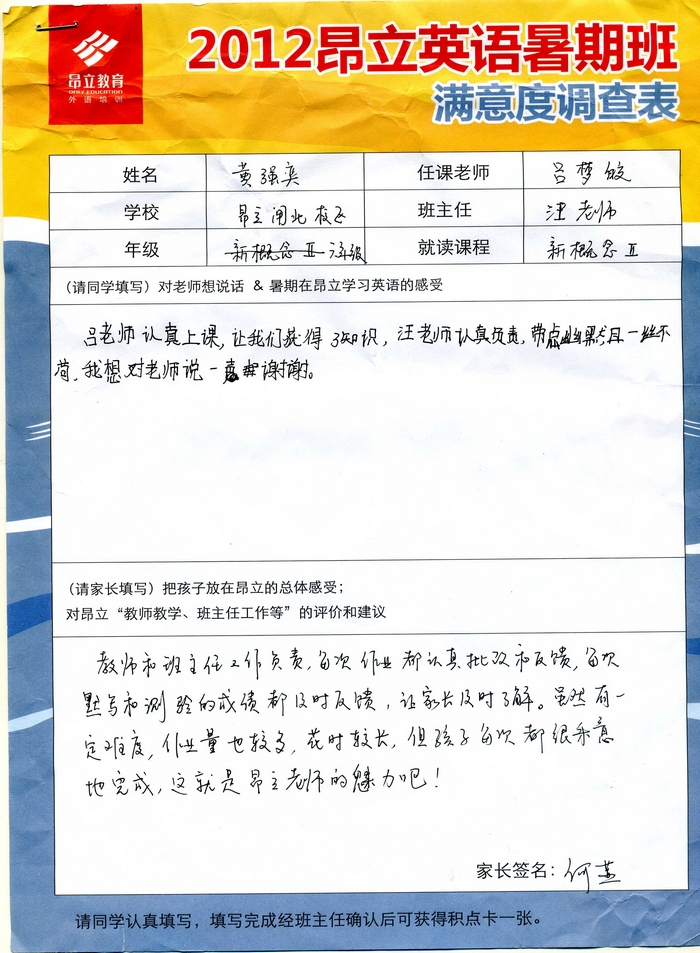 昂立教育
ONLY EDUCATION
外语培训
2012昂立英语暑期班
满意度调查表
姓名 黄强奕 任课老师 吕梦皎
学校 昂立闸北校区 班主任 汪老师
年级 新概念Ⅱ 就读课程 新概念Ⅱ
(请同学填写)对老师想说话 & 暑期在昂立学习英语的感受
吕老师认真上课,让我们获得了知识,汪老师认真负责,一丝不
苟,我想对老师说一声谢谢。
(请家长填写)把孩子放在昂立的总体感受;
对昂立“教师教学、班主任工作等”的评价和建议
教师和班主任工作负责,每次作业都认真批改和反馈,每次
默写和测验的成绩都及时反馈,让家长及时了解。虽然有一
定难度,作业量也较多,花时较长,但孩子每次都很乐意
地完成,这就是昂立老师的魅力吧!
家长签名:何燕
请同学认真填写,填写完成经班主任确认后可获得积点卡一张。